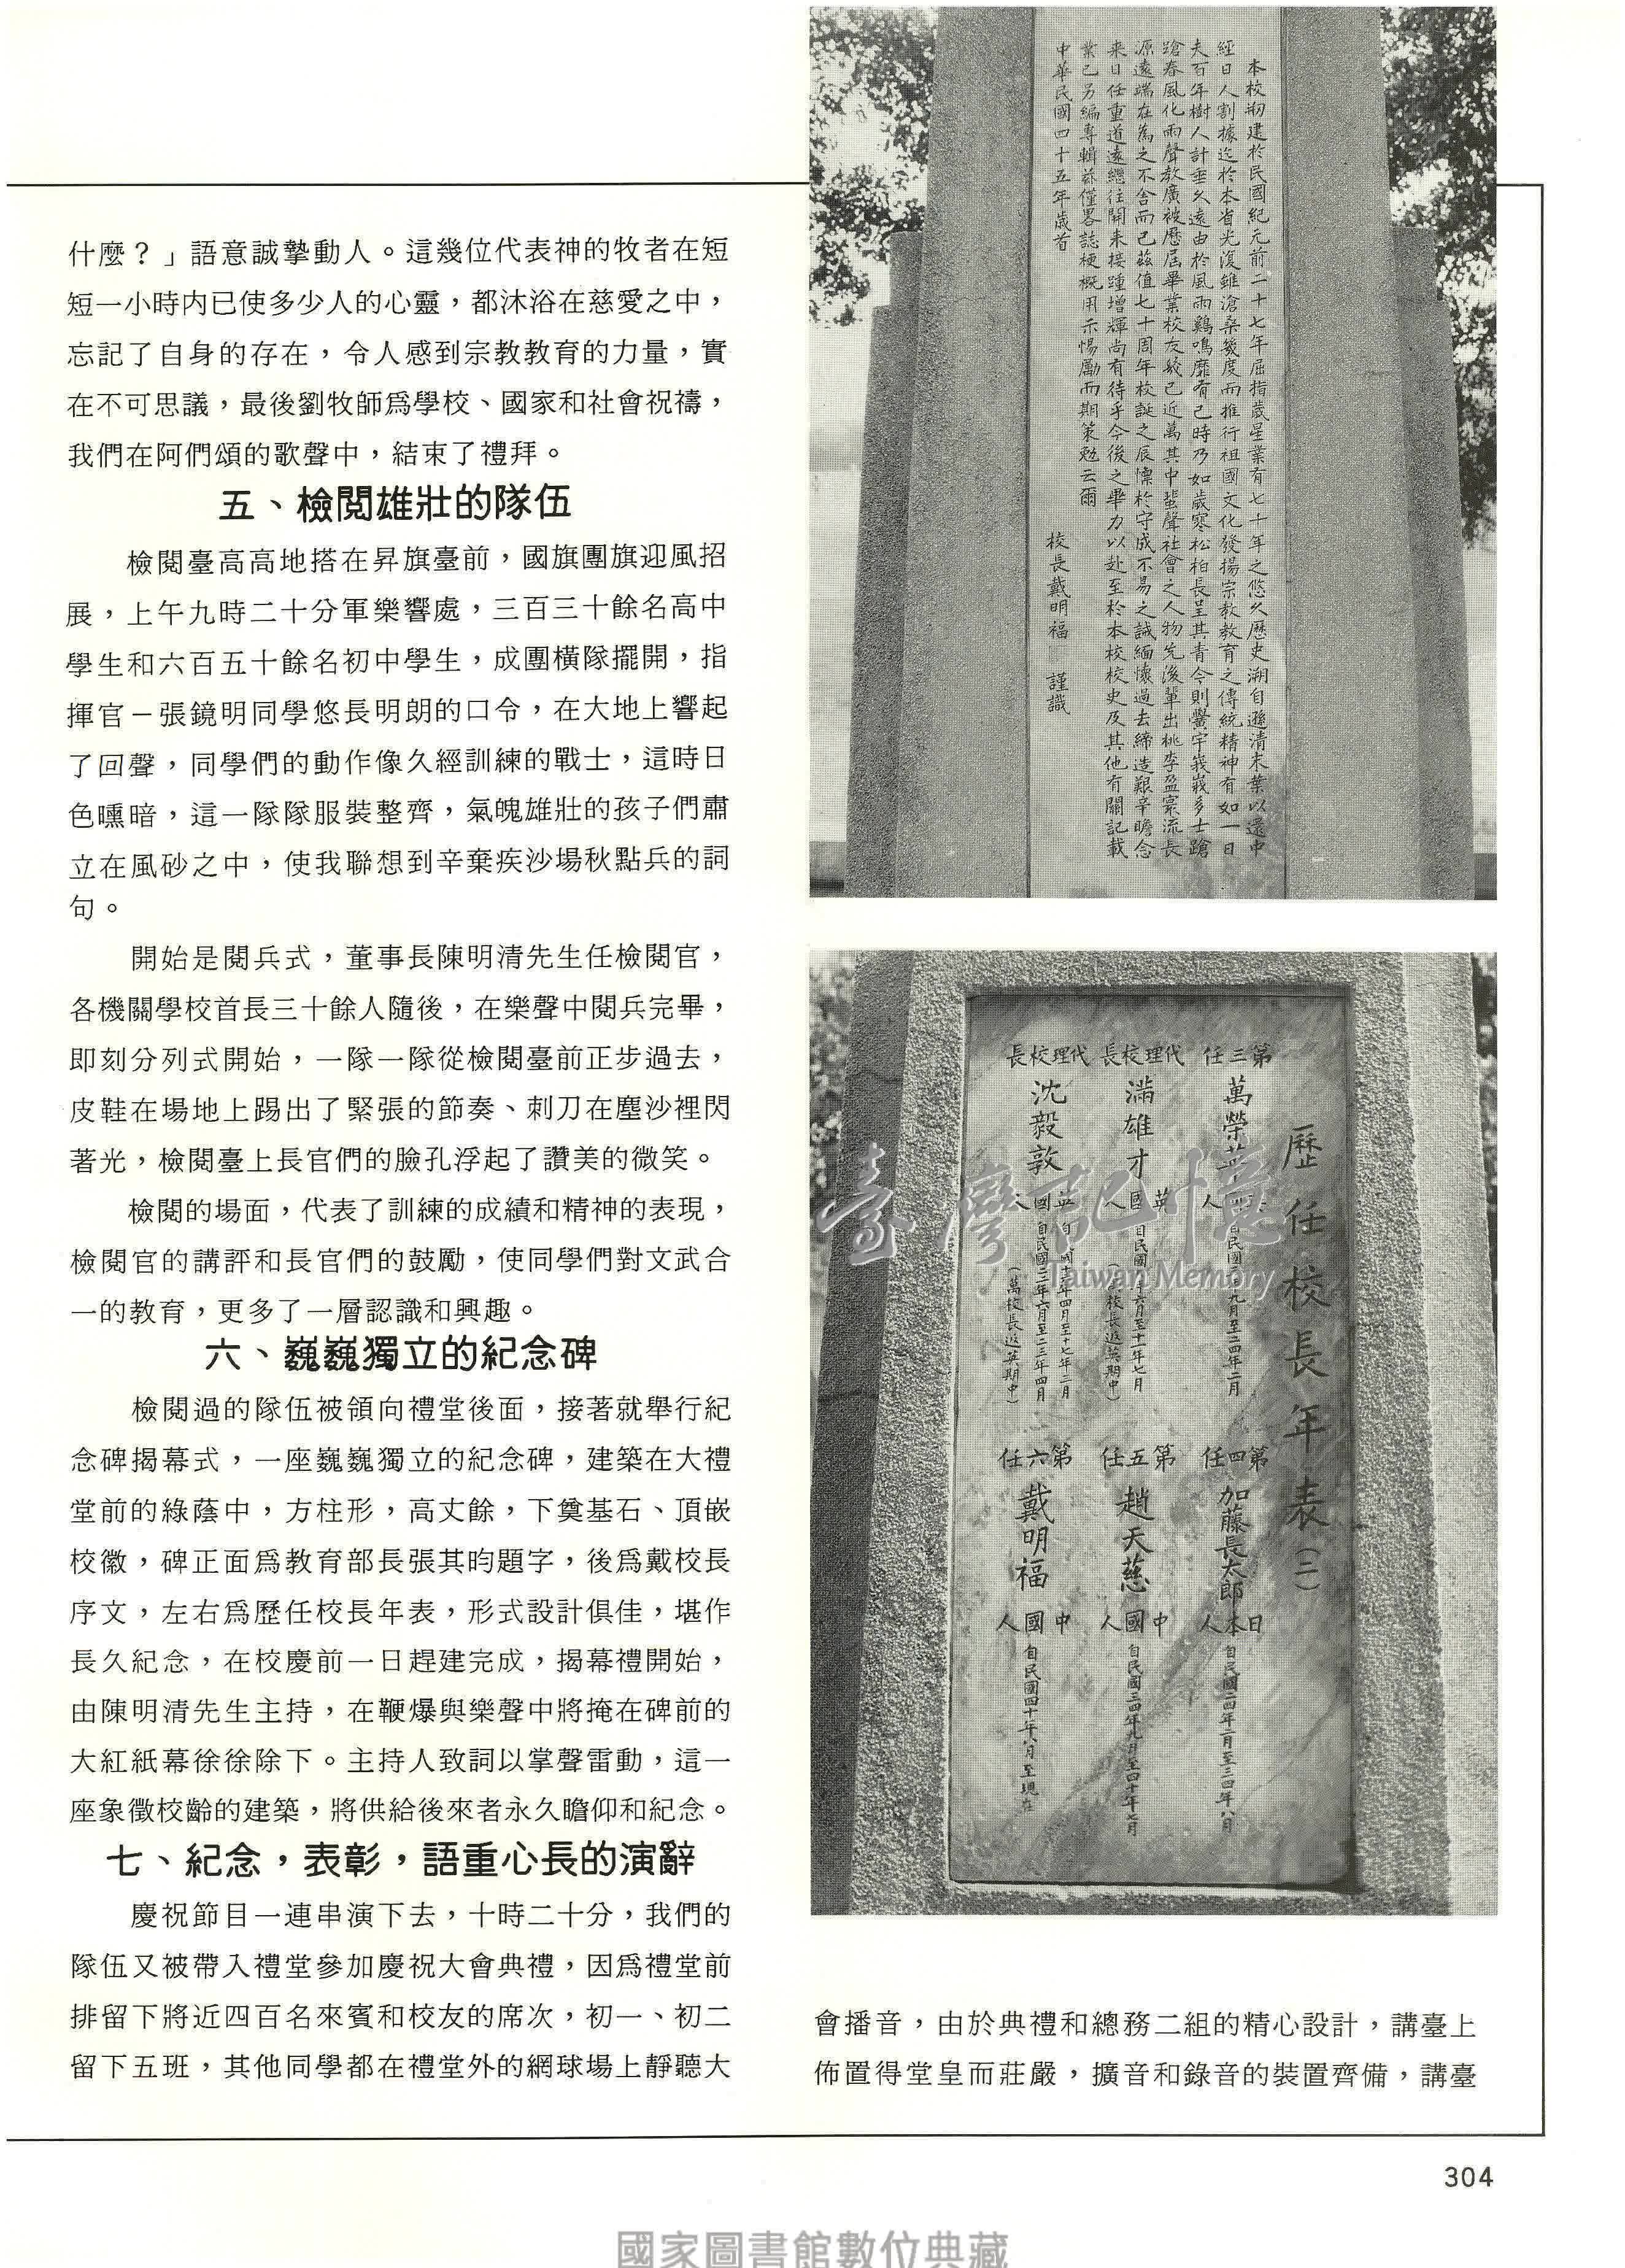 什麼？」語意誠摯動人。這幾位代表神的牧者在短
短一小時內已使多少人的心靈，都沐浴在慈愛之中，
忘記了自身的存在，令人感到宗教教育的力量，實
在不可思議，最後劉牧師爲學校、國家和社會祝禱，
我們在阿們頌的歌聲中，結束了禮拜。
五、檢閱雄壯的隊伍
檢閱臺高高地搭在昇旗臺前，國旗團旗迎風招
展，上午九時二十分軍樂響處，三百三十餘名高中
學生和六百五十餘名初中學生，成團橫隊擺開，指
揮官－張鏡明同學悠長明朗的口令，在大地上響起
了回聲，同學們的動作像久經訓練的戰士，這時日
色曛暗，這一隊隊服裝整齊，氣魄雄壯的孩子們肅
立在風砂之中，使我聯想到辛棄疾沙場秋點兵的詞
句。
開始是閱兵式，董事長陳明清先生任檢閱官，
各機關學校首長三十餘人隨後，在樂聲中閱兵完畢，
即刻分列式開始，一隊一隊從檢閱臺前正步過去，
皮鞋在場地上踢出了緊張的節奏、刺刀在塵沙裡閃
著光，檢閱臺上長官們的臉孔浮起了讚美的微笑。
檢閱的場面，代表了訓練的成績和精神的表現，
檢閱官的講評和長官們的鼓勵，使同學們對文武合
一的教育，更多了一層認識和興趣。
六、巍巍獨立的紀念碑
檢閱過的隊伍被領向禮堂後面，接著就舉行紀
念碑揭幕式，一座巍巍獨立的紀念碑，建築在大禮
堂前的綠蔭中，方柱形，高丈餘，下奠基石、頂嵌
校徽，碑正面爲教育部長張其昀題字，後爲戴校長
序文，左右爲歷任校長年表，形式設計俱佳，堪作
長久紀念，在校慶前一日趕建完成，揭幕禮開始，
由陳明清先生主持，在鞭爆與樂聲中將掩在碑前的
大紅紙幕徐徐除下。主持人致詞以掌聲雷動，這一
座象徵校齡的建築，將供給後來者永久瞻仰和紀念。
七、紀念，表彰，語重心長的演辭
慶祝節目一連串演下去，十時二十分，我們的
隊伍又被帶入禮堂參加慶祝大會典禮，因爲禮堂前
排留下將近四百名來賓和校友的席次，初一、初二
留下五班，其他同學都在禮堂外的網球場上靜聽大
本校剏建於民國紀元前二十七年屈指歲星業有七十年之悠久歷史溯自遜清末葉以還中
經日人割據迄於本省光復雖滄桑幾度而推行祖國文化發揚宗教教育之傳統精神有如一日
夫百年樹人計垂久遠由於風雨鷄鳴靡有已時乃如歲寒松柏長呈其青今則黌宇峩峩多士蹌
蹌春風化雨聲教廣被歷屆畢業校友幾已近萬其中蜚聲社會之人物先後輩出桃李盈寰流長
源遠端在為之不舍而已茲值七十周年校誕之辰懍於守成不易之誡緬懷過去締造艱辛瞻念
来日任重道遠繼往開来接踵增輝尚有待乎今後之畢力以赴至於本校校史及其他有關記載
業已另編專輯茲僅畧誌梗概用示惕勵而期策勉云爾
中華民國四十五年歲首
校長戴明福 謹識
歷任校長年表(二)
第三任
萬榮
人
代理校長
滿雄才
英國人
自民國 年六月至十一年七月
(萬校長返英期中)
代理校長
沈毅敦
英國人
自民國十六年四月至十七年二月
自民國二二年六月至二三年四月
(萬校長返英期中)
第四任
加藤長太郎
日本人
自民國二四年二月至三四年八月
第五任
趙天慈
中國人
自民國三四年九月至四十年七月
第六任
戴明福
中國人
自民國四十年八月至現在
臺灣記憶
Taiwan Memory
會播音，由於典禮和總務二組的精心設計，講臺上
佈置得堂皇而莊嚴，擴音和錄音的裝置齊備，講臺
304
國家圖書館數位典藏